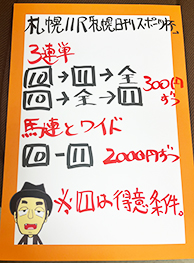 札幌11R札幌日刊スポーツ杯。
3連単
⑩→⑪→全 300円
⑩→全→⑪ ずつ
馬連とワイド
⑩-⑪ 2000円ずつ
※⑪は得意条件。